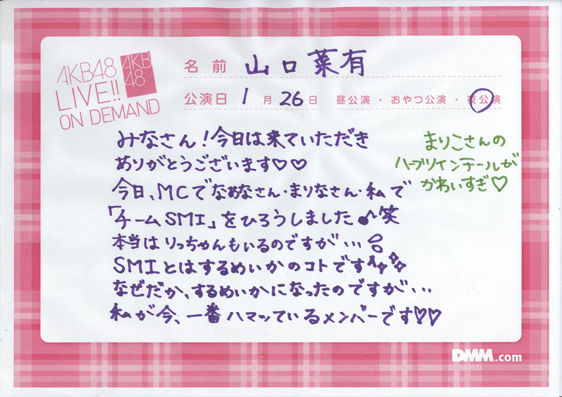 AKB48
LIVE!!
ON DEMAND
AKB
48
名前 山口菜有
公演日 1月26日 昼公演・おやつ公演・夜公演
みなさん!今日は来ていただき
ありがとうございます♡♡
今日、MCでなめなさん・まりなさん・私で
「チームSMI」をひろうしました♪笑
本当はりっちゃんもいるのですが...
SMIとはするめいかのコトです
なぜだか、するめいかになったのですが...
私が今、一番ハマッているメンバーです♡♡
まりこさんの
ハーフツインテールが
かわいすぎ♡
DMM.com